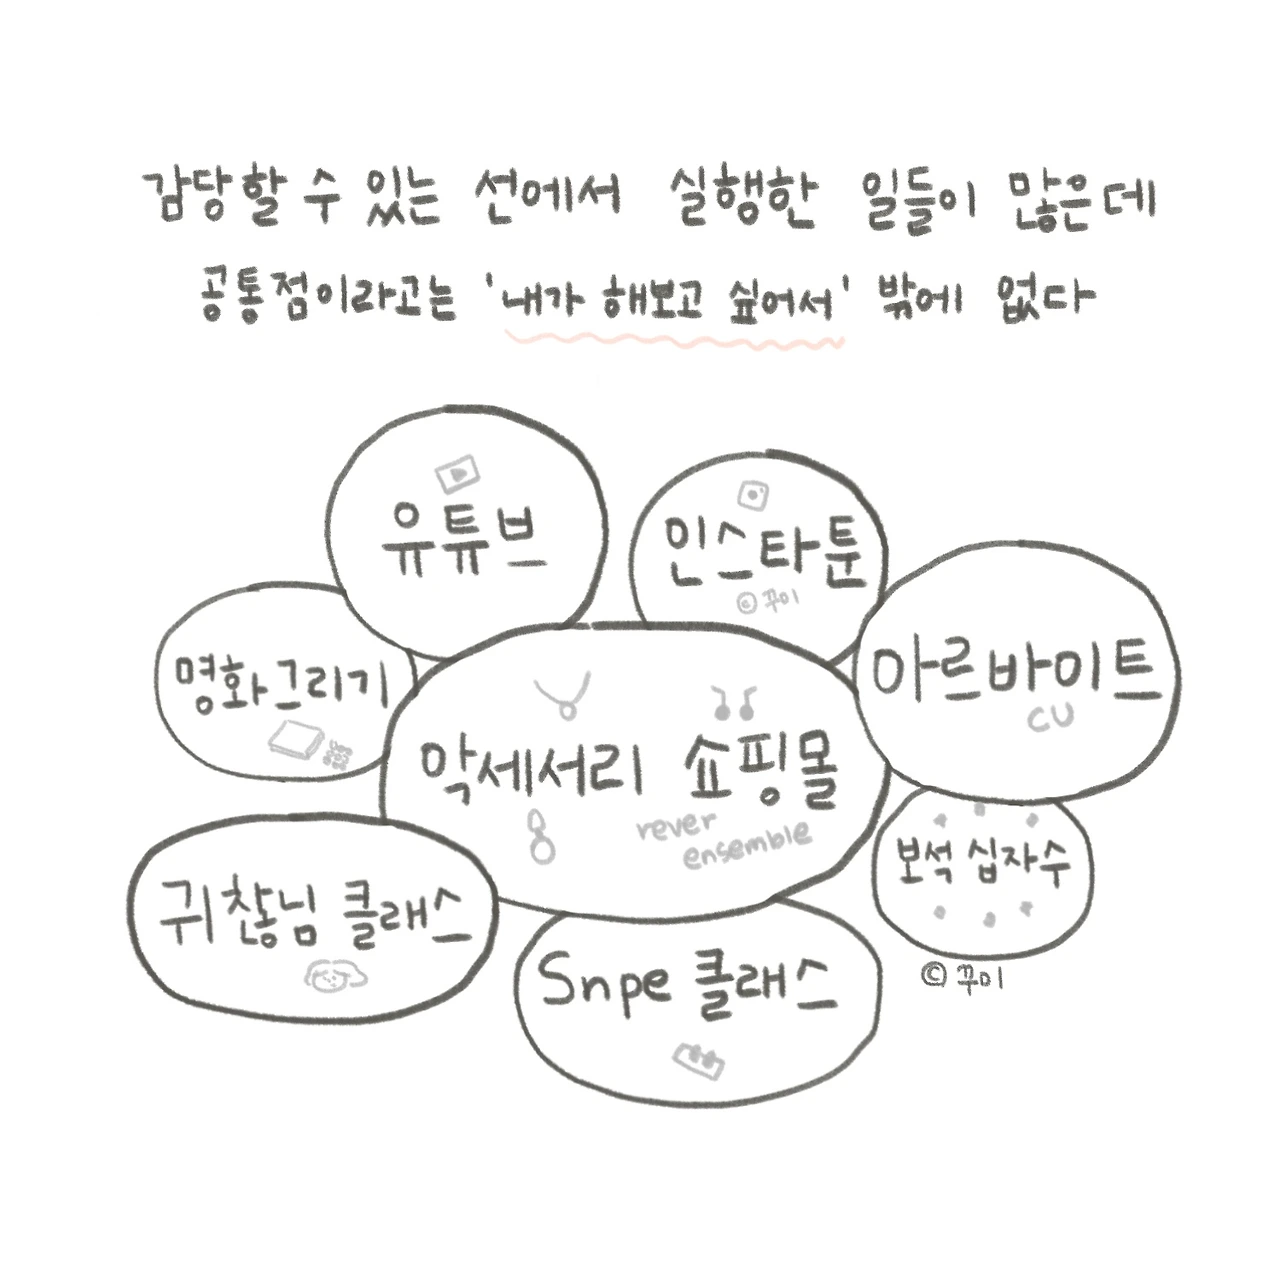 감당할 수 있는 선에서 실행한 일들이 많은데
공통점이라고는 '내가 해보고 싶어서' 밖에 없다
유튜브
인스타툰
© 꾸미
명화그리기
아르바이트
CU
악세서리 쇼핑몰
rever
ensemble
보석 십자수
귀찮님 클래스
Snpe 클래스
© 꾸미